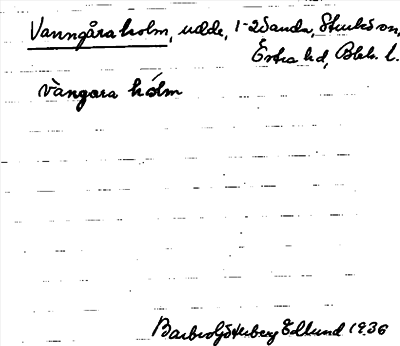 Vanngåraholm, udde, 1-2 Sanda, Sturkö sn,
Östra hd, Blek. l.
vàngara hólm
Barbro Söderberg Edlund 1936